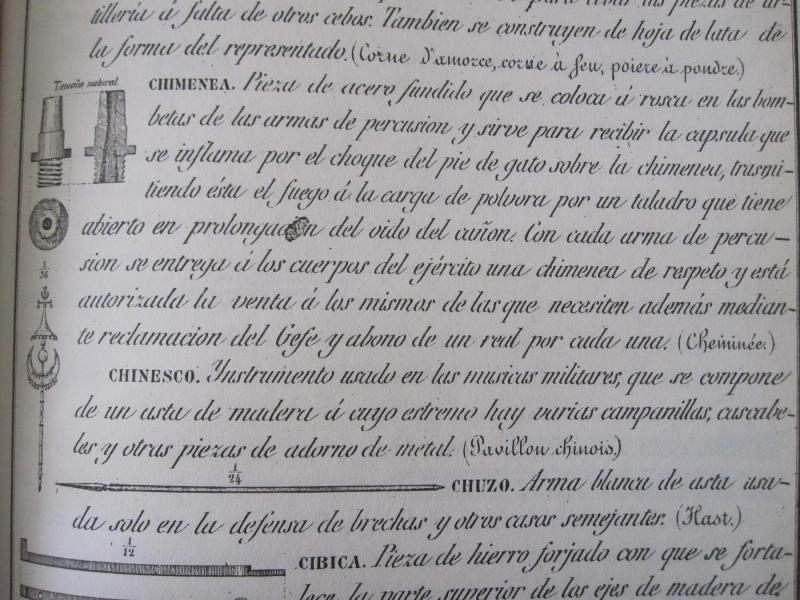 para cebar las piezas de ar-
tilleria á falta de otros cebos. Tambien se construyen de hoja de lata de
la forma del representado. (Corne d'amorce, corne à feu, poiere à pondre.)
Tamaño natural.
CHIMENEA. Pieza de acero fundido que se coloca á rosca en las bom-
betas de las armas de percusion y sirve para recibir la capsula que
se inflama por el choque del pie de gato sobre la chimenea, trasmi-
tiendo ésta el fuego á la carga de polvora por un taladro que tiene
abierto en prolongacion del oido del cañon. Con cada arma de percu-
sion se entrega á los cuerpos del ejército una chimenea de respeto y está
autorizada la venta á los mismos de las que necesiten además median-
te reclamacion del Gefe y abono de un real por cada una. (Cheminée.)
1/36
CHINESCO. Ynstrumento usado en las musicas militares, que se compone
de un asta de madera á cuyo estremo hay varias campanillas, cascabe-
les y otras piezas de adorno de metal. (Pavillon chinois.)
1/24
CHUZO. Arma blanca de asta usa-
da solo en la defensa de brechas y otros casos semejantes. (Hast.)
1/12
CIBICA. Pieza de hierro forjado con que se forta-
lece la parte superior de los ejes de madera de